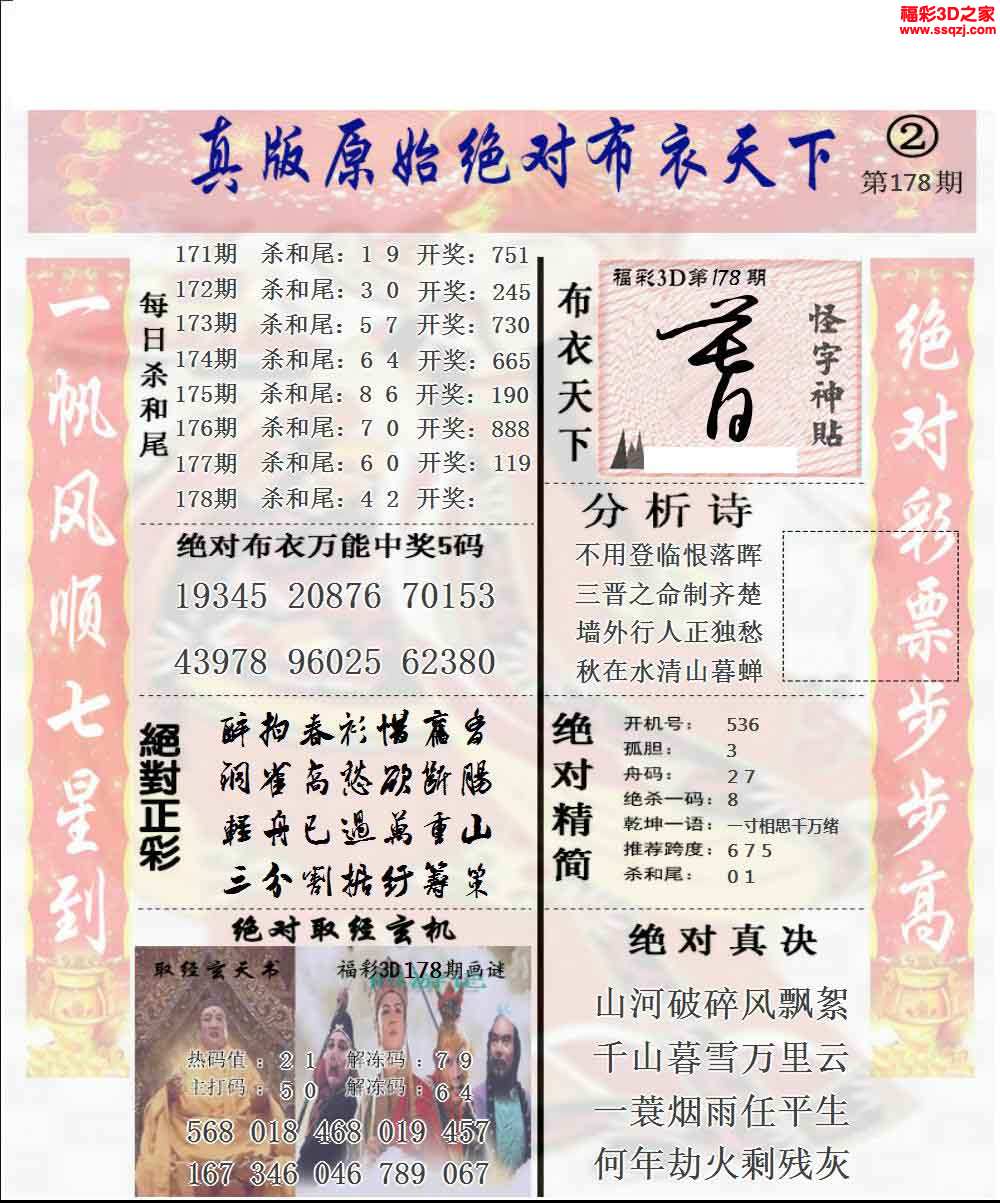 福彩3D之家
www.ssqzj.com
真版原始绝对布衣天下
②
第178期
一帆风顺七星到
每日杀和尾
171期 杀和尾：1 9 开奖：751
172期 杀和尾：3 0 开奖：245
173期 杀和尾：5 7 开奖：730
174期 杀和尾：6 4 开奖：665
175期 杀和尾：8 6 开奖：190
176期 杀和尾：7 0 开奖：888
177期 杀和尾：6 0 开奖：119
178期 杀和尾：4 2 开奖：
绝对布衣万能中奖5码
19345 20876 70153
43978 96025 62380
絕對正彩
醉拘春衫惜舊香
洞雀高愁欲断腸
輕舟已過萬重山
三分割据纡籌策
绝对取经玄机
取经玄天书
福彩3D178期画谜
热码值：2 1 解冻码：7 9
主打码：5 0 解冻码：6 4
568 018 468 019 457
167 346 046 789 067
布衣天下
福彩3D第178期
怪字神贴
分析诗
不用登临恨落晖
三晋之命制齐楚
墙外行人正独愁
秋在水清山暮蝉
绝对精简
开机号： 536
孤胆： 3
舟码： 2 7
绝杀一码：8
乾坤一语：一寸相思千万绪
推荐跨度：6 7 5
杀和尾： 0 1
绝对真决
山河破碎风飘絮
千山暮雪万里云
一蓑烟雨任平生
何年劫火剩残灰
绝对彩票步步高